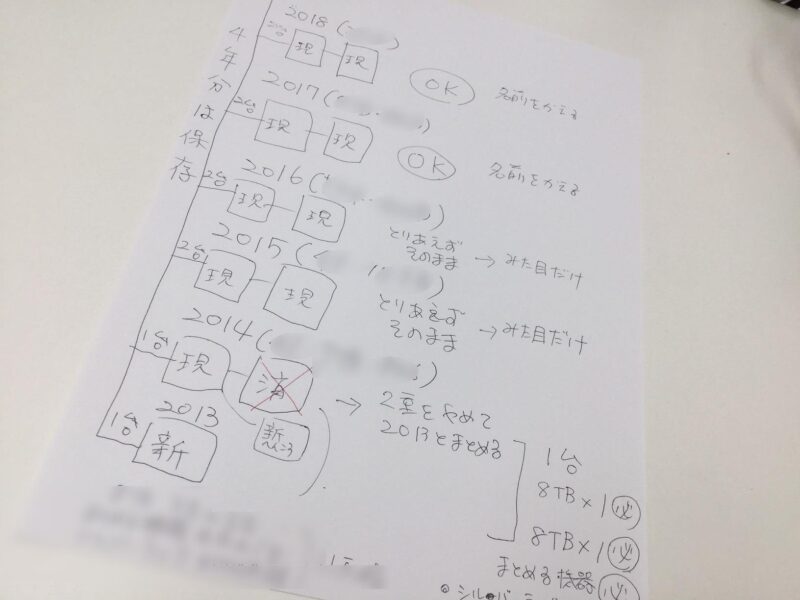 4年分は保存
2018 (
2台 現 現 OK 名前をかえる
2017 (
)
2台 現 現 OK 名前をかえる
2016 (
)
2台 現 現 とりあえず
そのまま → みた目だけ
2015 (
)
2台 現 現 とりあえず
そのまま → みた目だけ
2014 (
)
1台 現 消 → 2重をやめて
2013とまとめる
2013
1台 新
1台
8TB×1 必
8TB×1 必
まとめる機器 必